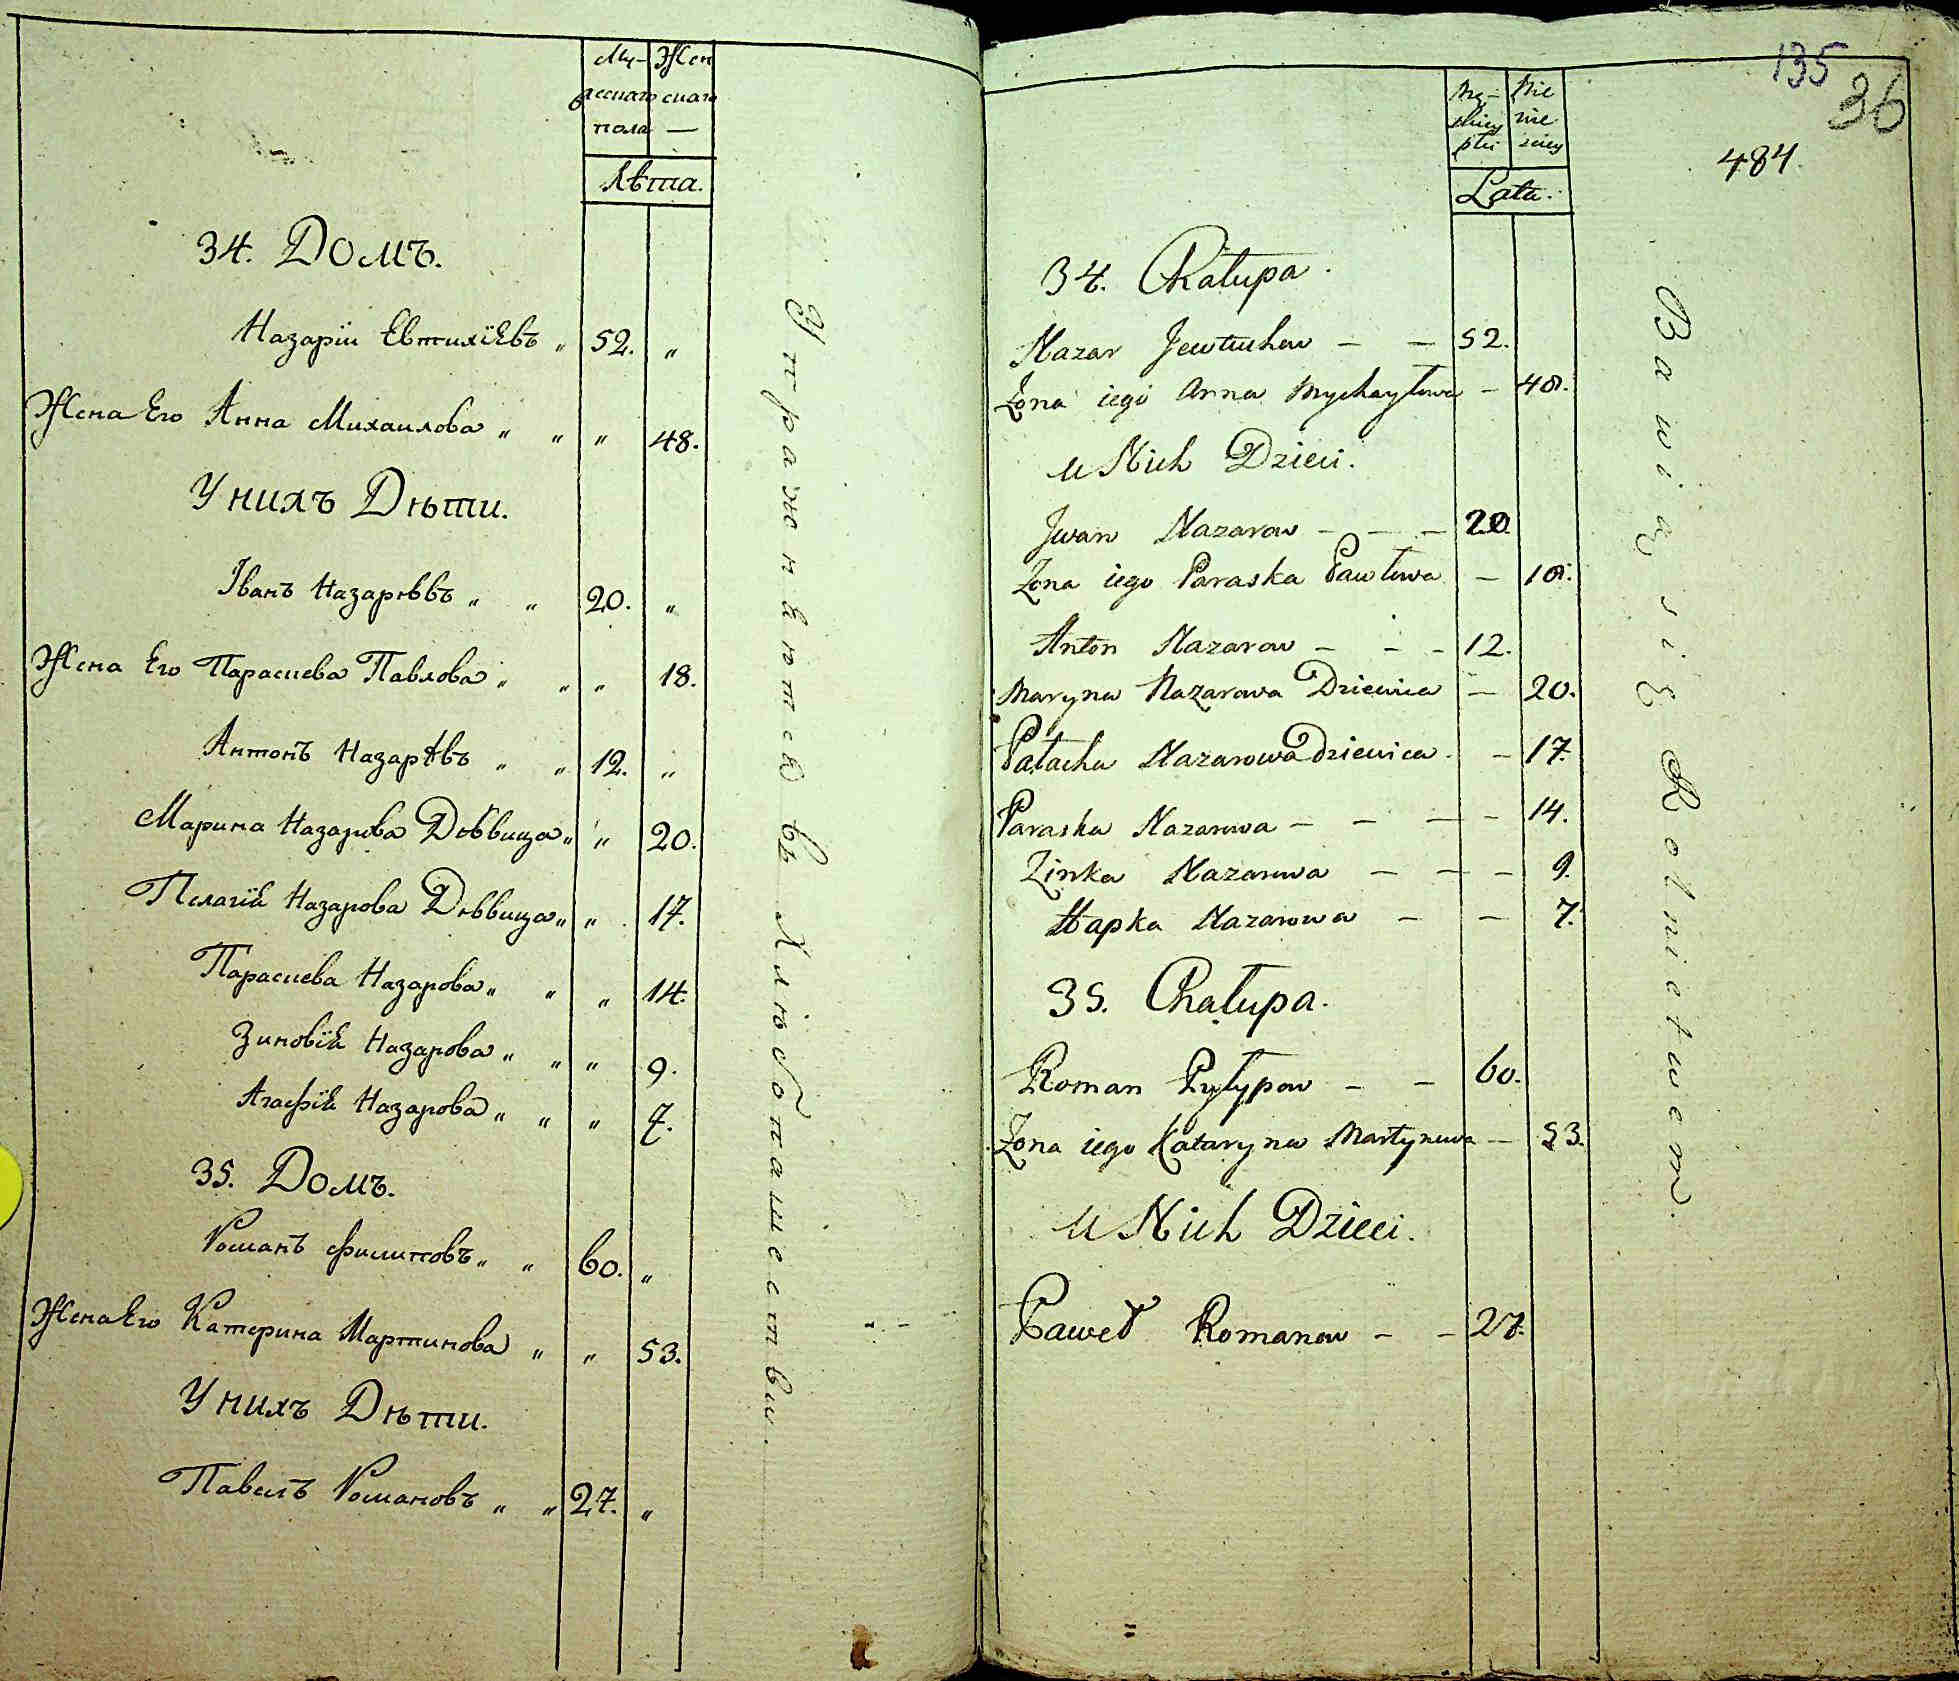 Му- Жен
жескаго скаго
пола —
Лѣта.
34. Домъ.
Назарiи Евтихiевъ „ 52. „
Жена Его Анна Михаилова „ „ „ 48.
У нихъ Дѣти.
Iванъ Назарѣвъ „ „ 20. „
Жена Его Параскева Павлова „ „ „ 18.
Антонъ Назарѣвъ „ „ 12. „
Марина Назарова Дѣвица „ „ 20.
Пелагiя Назарова Дѣвица „ „ 17.
Параскева Назарова „ „ „ 14.
Зиновiя Назарова „ „ „ 9.
Агафiя Назарова „ „ „ 7.
35. Домъ.
Романъ Филиповъ „ „ 60. „
Жена Его Катерина Мартинова „ „ 53.
У нихъ Дѣти.
Павелъ Романовъ „ „ 27. „
Упражняются въ Хлѣбопашествѣ.
135
36
484.
Mę- Nie
skiey wie
płci sciey
Lata.
34. Chałupa.
Nazar Jewtuchow — — 52.
Żona iego Anna Mychayłowa — 48.
u Nich Dzieci.
Jwan Nazarow — — — 20.
Żona iego Paraska Pawłowa — 18.
Anton Nazarow — — — 12.
Maryna Nazarowa Dziewica — 20.
Pałacha Nazarowa Dziewica. — 17.
Paraska Nazarowa — — — — 14.
Zinka Nazarowa — — — 9.
Hapka Nazarowa — — 7.
35. Chałupa.
Roman Pyłypow — — 60.
Żona iego Kataryna Martynowa — 53.
u Nich Dzieci.
Paweł Romanow — — 27.
Bawią się Rolnictwem.